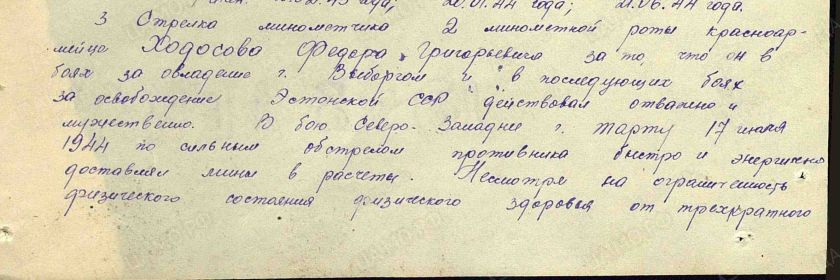 20.01.44 года; 21.06.44 года.
3 Стрелка минометчика 2 минометной роты красноар-
мейца Ходосова Федора Григорьевича за то, что он в
боях за овладение г. Выборгом и в последующих боях
за освобождение Эстонской ССР действовал отважно и
мужественно. В бою Северо-Западнее г. Тарту 17
1944 по сильным обстрелом противника быстро и энергично
доставлял мины в расчеты. Несмотря на ограниченность
физического состояния физического здоровья от трехкратного